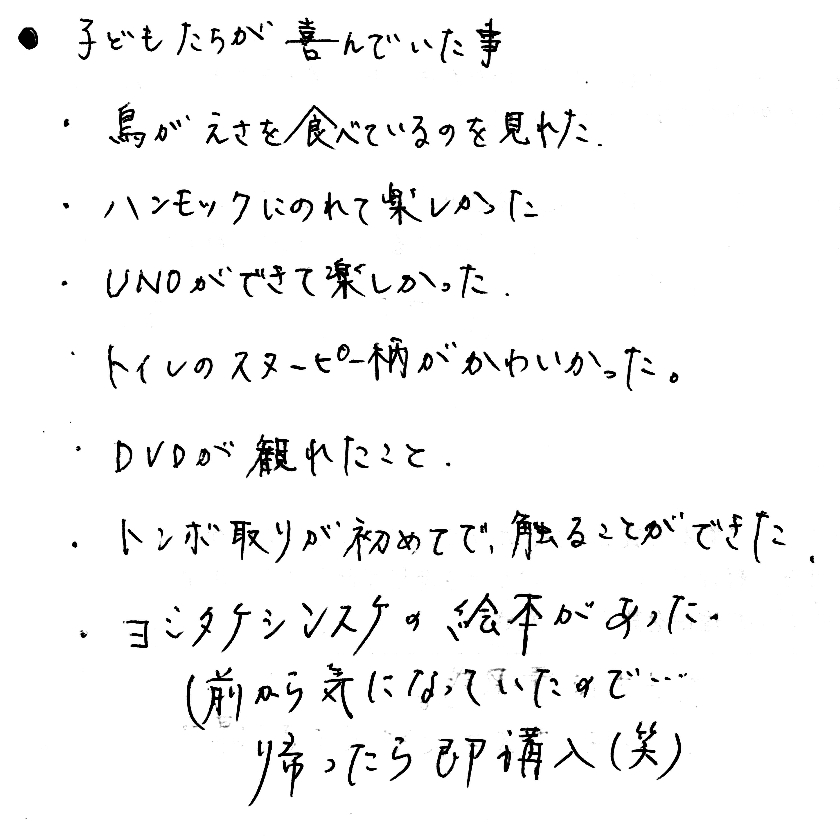 ● 子どもたちが喜んでいた事
・鳥がえさを食べているのを見れた.
・ハンモックにのれて楽しかった
・UNOができて楽しかった.
・トイレのスヌーピー柄がかわいかった。
・DVDが観れたこと.
・トンボ取りが初めてで、触ることができた.
・ヨシタケシンスケの絵本があった.
(前から気になっていたので…
帰ったら即購入(笑)